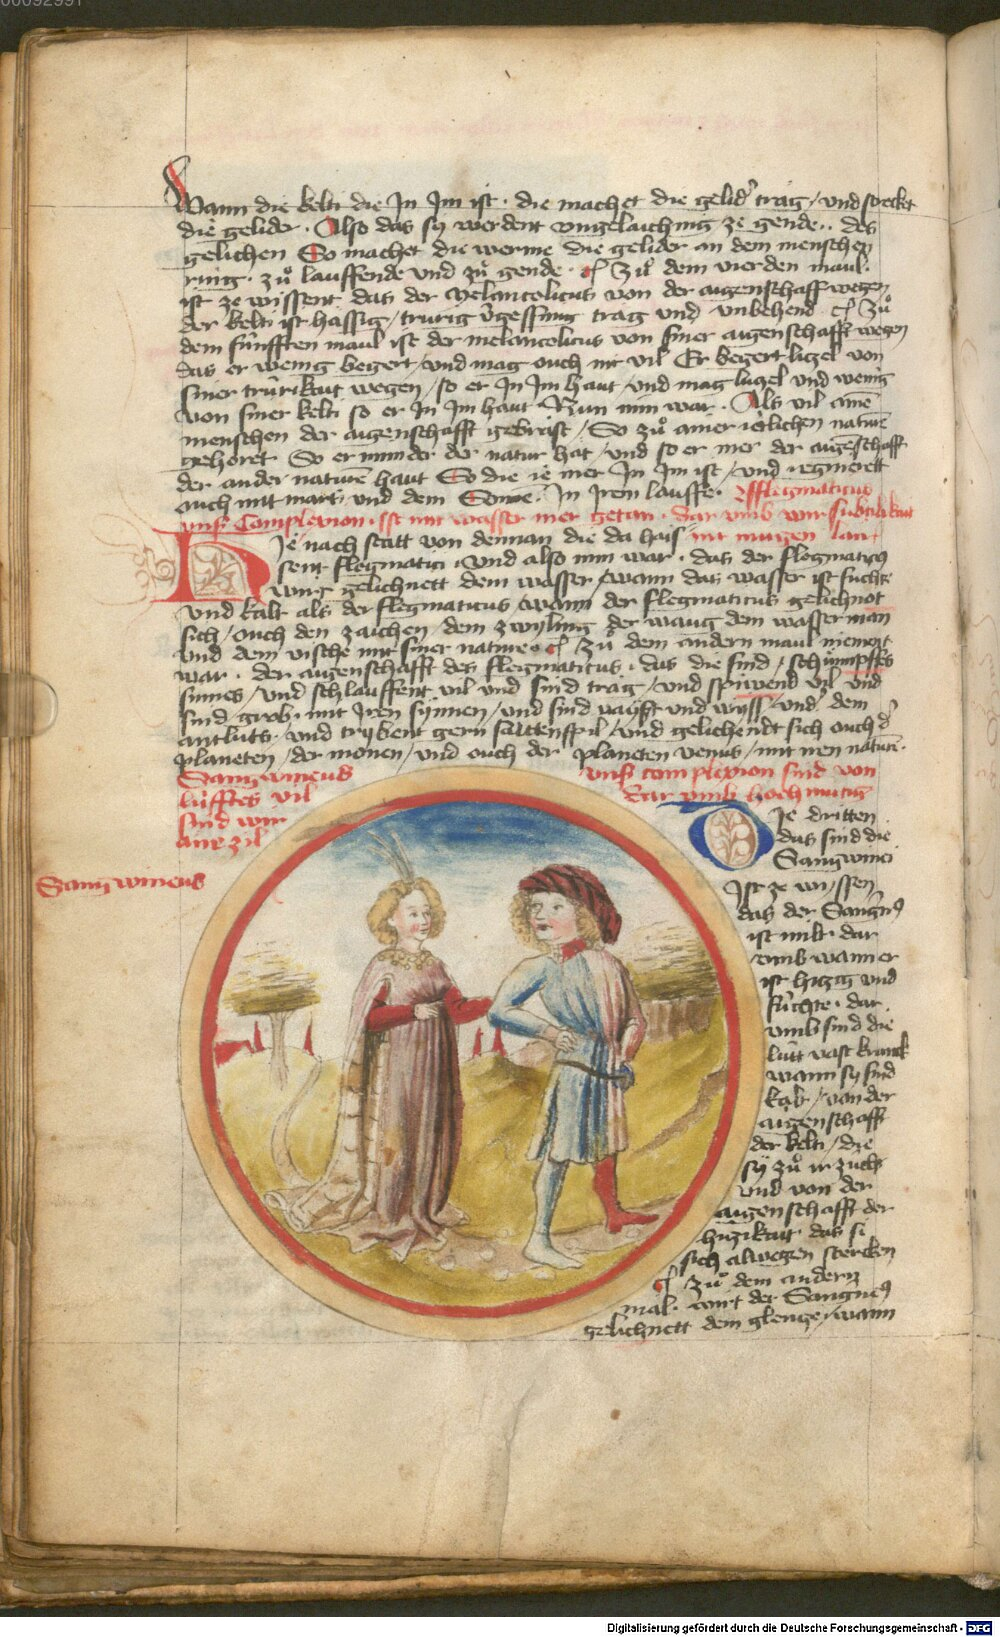 00092991
Wann die kelti die Jn Jm ist · die machet die gelider träg / und strecket
die gelider · Also das sy werdent ungelaichnig ze gende ·· des
gelichen So machet die werme die gelider an dem menschen
ring · zů lauffende und zů gende · Zů dem vierden maul ·
ist ze wissent das der Melancolicus von der augenschafft wegen
der kelti ist hässig / trurig ṽgessung träg und unbehend · Zů
dem fünfften maul ist der melancolicus von siner augenschafft wegen
das er wenig begert / und mag ouch nit vil Er begert lützel von
siner trurikait wegen / so er Jn Jm haut / und mag lützel und wenig
von siner kelti so er Jn Jm haut Nun nim war · Als vil aine
menschen der augenschafft gebrist / So zů ainer ietlichen nature
gehöret So er minder der natur hat / und so er mer der augeschafft
der ander nature haut So die ie mer Jn Jm ist / und regnierett
ouch mit marti und dem Sonne · Jn Jrem lauffe · fflegmaticus
vnser Complexion · ist mit wasser mer getan · Dar umb wir subtilikait
nit mugen lan
Hie nach statt von dennan die da hais
sent flegmatici · und also nim war · das der flegmaticus
wirt gelichnett dem wasser / wann das wasser ist fücht
und kalt als der flegmaticus / wann der flegmaticus gelichnot
sich / ouch den zaichen / dem zwyling der waug dem wasserman
und dem vische mit siner nature · Zů dem andern maul niement
war · der augenschafft des flegmaticus · das die sind / schimpffes
sinnes / und schlauffent vil und sind träg / und spüwend vil und
sind grob · mit Jren synnen / und sind vayst und wyss / und dem
antlüts · und trybent gern saittenspil / und gelichendt sich ouch d'
planeten / der monen / und ouch der planeten venus / mit iren nature ·
Sangwineus
lüfftes vil
sind wir
ane zil
vnser complexion sind von
Dar umb hochmutig
Sangwineus
Die dritten
das sind die
Sangwinei
Jst ze wyssen
das der Sangu9
ist milt · dar
umb wann er
ist hitzig und
füchte · dar
umb sind die
lütt vast kranck
wann sy sind
kalt / von der
augenschafft
der kelti / die
sy zů ir züch
und von der
augenschafft der
hitzikait das si
sich alwegen stercken
Zů dem andern
mäl · wirt der Sangnus
gelichnett dem glentze / wann
Digitalisierung gefördert durch die Deutsche Forschungsgemeinschaft - DFG